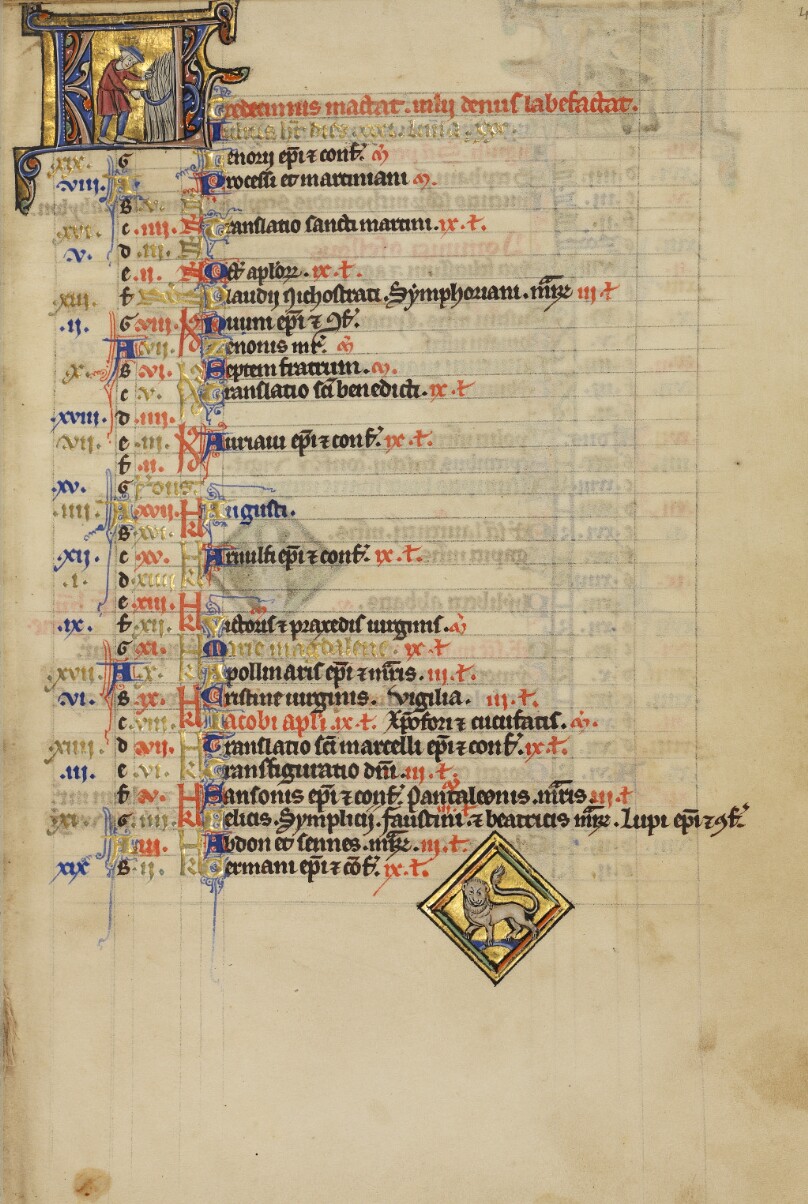 Tredecimus mactat. iulij denus labefactat.
Iulius ht dies .xxxi. luna .xxx.
.xix. G Lenorij epi ⁊ conf. m̄
.viii. A Processi et martiniani m̄.
B v.
.xvi. c .iiii. N Translatio sancti martini .ix. l.
.v. d .iii. N
e .ii. N Oct aplorꝝ. ix. l.
.xiii. f Claudij Nichostrati. Symphoriani. mr̄ꝝ iii l
.ii. G viii. Id
A vii. Zenonis mr. m̄
.x. B vi. Septem fratrum. m̄.
c v. Translatio sc̄i benedicti. ix. l
.xviii. d .iiii.
.vii. e .iii. Auriaui epi ⁊ conf. ix. l.
f .ii.
.xv. G Idus
.iiii. A xvii. kl Augusti.
B xvi.
.xii. c xv. kl Arnulfi epi ⁊ conf. ix. l.
.i. d xiiii kl
e xiii. kl
.ix. f xii. kl Victoris ⁊ praxedis uirginis. m̄
G xi. kl Marie magdalene. ix. l
.xvii. A x. kl Apollinaris epi ⁊ mr̄is. iii. l.
.vi. B ix. kl Cristine uirginis. Vigilia. iii. l.
c viii. kl Iacobi apl̄i. ix. l. Xp̄ofori ⁊ cucufatis. m̄.
.xiiii. d vii. kl Translatio sc̄i marcelli epi ⁊ conf. ix. l.
.iii. e vi. kl Transfiguratio dn̄i. iii. l.
f v. kl Sansonis epi ⁊ conf. Pantaleonis. mr̄is iii. l
.xi. G iiii. kl Felicis. Symplicij. faustini. ⁊ beatricis mr̄ꝝ. Lupi epi ⁊ ꝯf.
A iii. kl Abdon et sennes. mr̄ꝝ. iii. l.
xix B ii. kl Germani epi ⁊ cōf. ix. l.